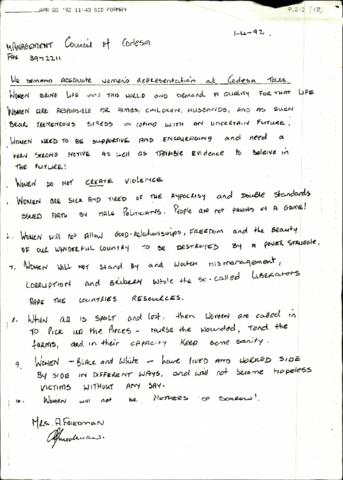 APR 02 '92 11:43 SID FORMAN P.2/2
1-4-92.
MANAGEMENT Council of Codesa
FAX 397-2211
We demand adequate women's representation at Codesa Talks.
WOMEN BRING LIFE INTO THIS WORLD AND DEMAND A QUALITY FOR THAT LIFE
WOMEN ARE RESPONSIBLE FOR HOMES, CHILDREN, HUSBANDS, AND AS SUCH
BEAR TREMENDOUS STRESS IN COPING WITH AN UNCERTAIN FUTURE.
WOMEN NEED TO BE SUPPORTIVE AND ENCOURAGING and need a
VERY STRONG MOTIVE AS WELL AS TANGIBLE EVIDENCE TO BELIEVE IN
THE FUTURE!
WOMEN DO NOT CREATE VIOLENCE
WOMEN ARE SICK AND TIRED OF THE HYPOCRISY and Double Standards
FORTH BY MALE POLITICIANS. PEOPLE ARE NOT PAWNS IN A GAME!
WOMEN WILL NOT ALLOW GOOD-RELATIONSHIPS, FREEDOM and the BEAUTY
OF OUR WONDERFUL COUNTRY TO BE DESTROYED BY A POWER STRUGGLE.
7. WOMEN WILL NOT STAND BY and WATCH MISMANAGEMENT,
CORRUPTION and BRIBERY WHILE THE SO-CALLED LIBERATORS
RAPE THE COUNTRIES RESOURCES.
8. WHEN ALL IS SPILT and lost, then WOMEN ARE CALLED IN
TO PICK UP the PIECES - NURSE the WOUNDED, TEND the
FARMS, and in their CAPACITY KEEP SOME SANITY.
9. WOMEN - BLACK and WHITE - have LIVED AND WORKED SIDE
BY SIDE IN DIFFERENT WAYS, and will not become HOPELESS
VICTIMS WITHOUT ANY SAY.
10. WOMEN will not BE MOTHERS OF SORROW!
MRS. A. FRIEDMAN